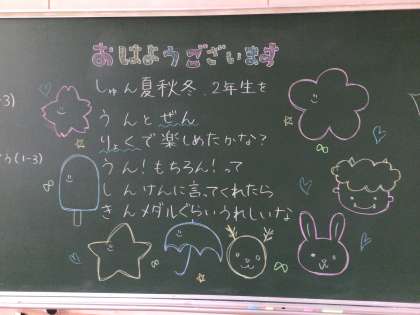 おはようございます
しゅん夏秋冬、2年生を
うんとぜん
りょくで楽しめたかな?
うん!もちろん!って
しんけんに言ってくれたら
きんメダルぐらいうれしいな
-3)
う(1-3)